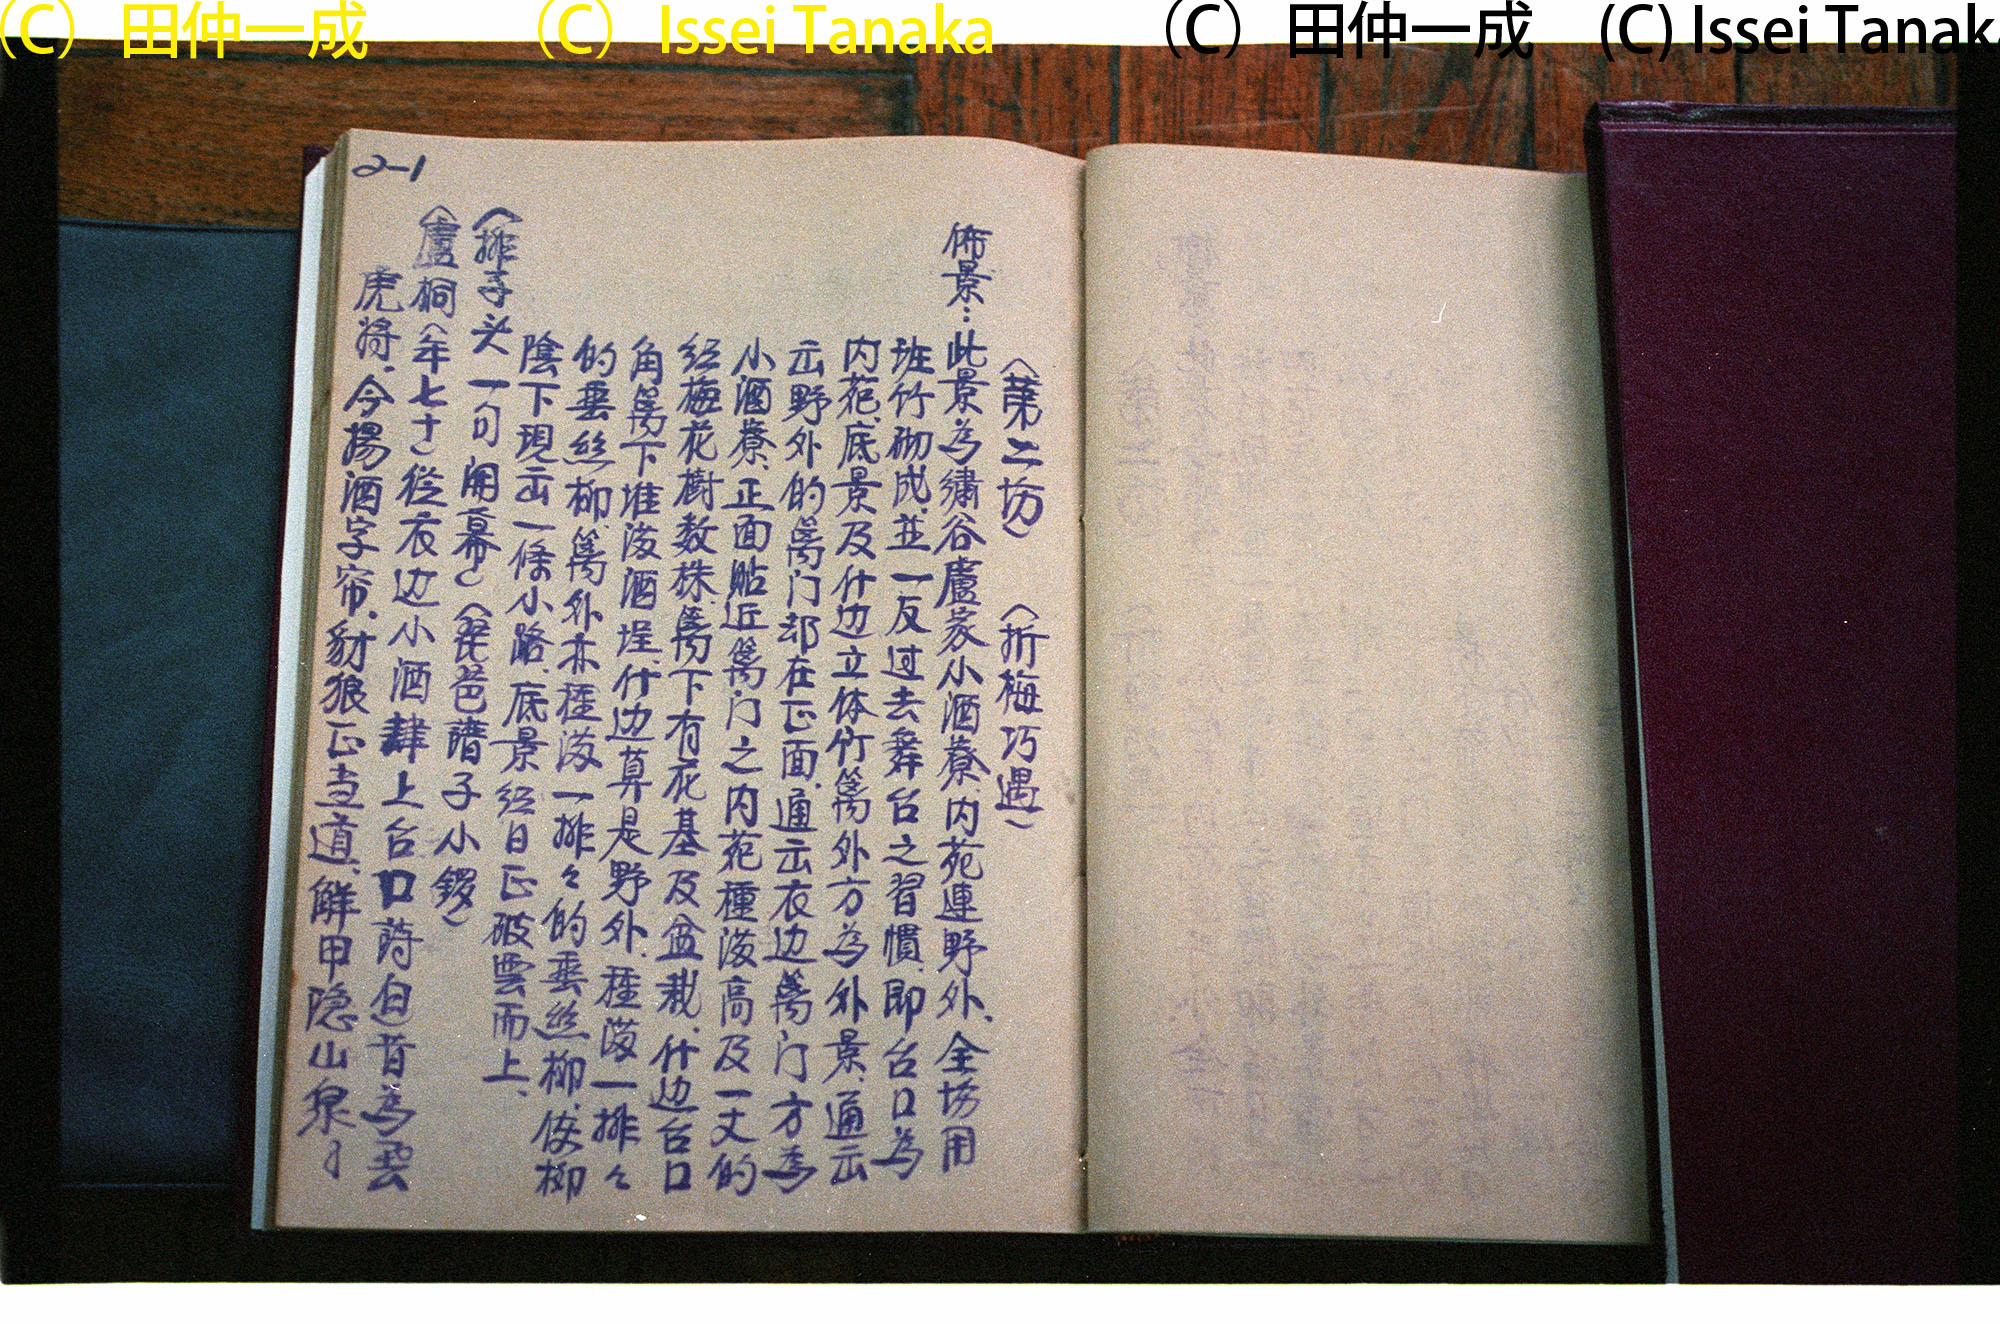 (C) 田仲一成 (C) Issei Tanaka (C) 田仲一成 (C) Issei Tanaka
2-1
〈第二场〉 〈折梅巧遇〉
佈景：此景為繡谷盧家小酒寮、内苑連野外、全场用
班竹砌成、並一反过去舞台之習慣、即台口為
内苑、底景及什边立体竹篱外方為外景、通云
云野外的篱门却在正面、通云衣边篱门方為
小酒寮、正面貼近篱门之内苑種滿高及一丈的
经梅花樹数株、篱下有花基及盆栽、什边台口
角篱下堆滿酒埕、什边算是野外、種滿一排々
的垂丝柳、篱外亦種滿一排々的垂丝柳、從柳
陰下現云一條小路、底景经日正破雲而上、
〈排子头一句開幕〉〈琵琶譜子小鑼〉
〈盧桐〈年七十〉從衣边小酒肆上台口詩白〉昔為雲
虎將、今揚酒字帘、豺狼正当道、解甲隐山泉〻